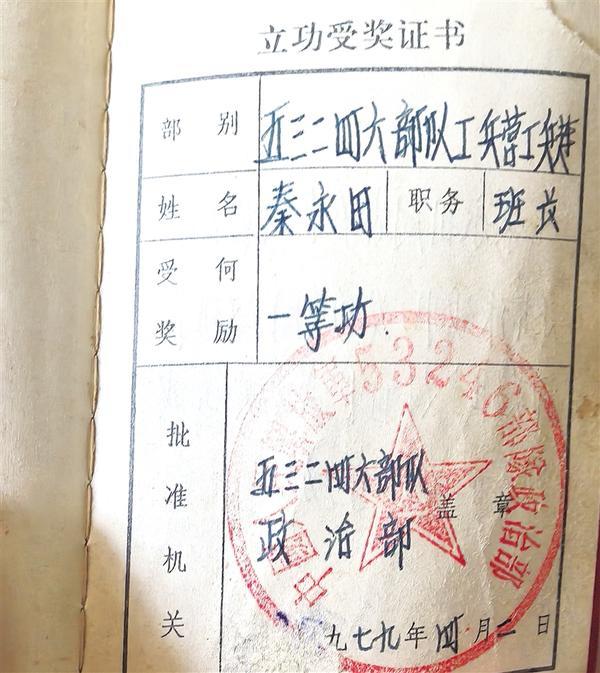 立功受奖证书
部别 五三二四六部队工兵营工兵连
姓名 秦永田 职务 班长
受何奖励 一等功
中国人民解放军53246部队政治部
批准机关 五三二四六部队
政治部
盖章
九七九年四月二日